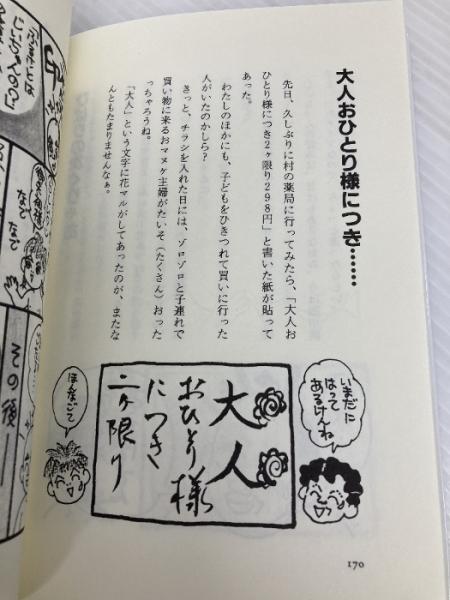 大人おひとり様につき……
先日、久しぶりに村の薬局に行ってみたら、「大人お
ひとり様につき2ヶ限り298円」と書いた紙が貼って
あった。
わたしのほかにも、子どもをひきつれて買いに行った
人がいたのかしら？
きっと、チラシを入れた日には、ゾロゾロと子連れで
買い物に来るおマヌケ主婦がたいそ（たくさん）おった
っちゃろうね。
「大人」という文字に花マルがしてあったのが、またな
んともたまりませんなぁ。
いまだに
はって
あるけんね
大人
おひとり様
につき
二ヶ限り
ほんなごて
170
なで
なで
その後